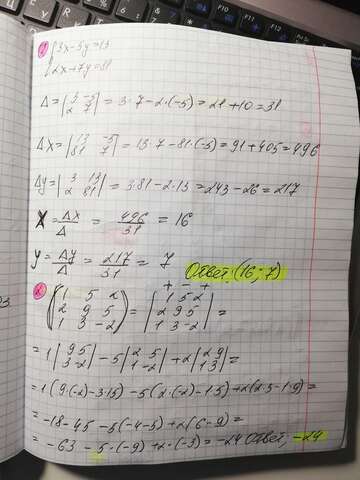 1) { 3x-5y=13
{ 2x+7y=81
Δ = | 3 -5 | = 3·7-2·(-5)=21+10=31
| 2 7 |
Δx = | 13 -5 | = 13·7-81·(-5)=91+405=496
| 81 7 |
Δy = | 3 13 | = 3·81-2·13=243-26=217
| 2 81 |
X = Δx/Δ = 496/31 = 16
y = Δy/Δ = 217/31 = 7 Ответ: (16; 7)
+ - +
2) ( 1 5 2 ) = | 1 5 2 | =
( 2 9 5 ) | 2 9 5 |
( 1 3 -2 ) | 1 3 -2 |
= 1 | 9 5 | - 5 | 2 5 | + 2 | 2 9 | =
| 3 -2 | | 1 -2 | | 1 3 |
= 1(9(-2)-3·5)-5(2·(-2)-1·5)+2(2·3-1·9)=
= -18-45-5(-4-5)+2(6-9)=
= -63-5·(-9)+2·(-3)=-24 Ответ: -24